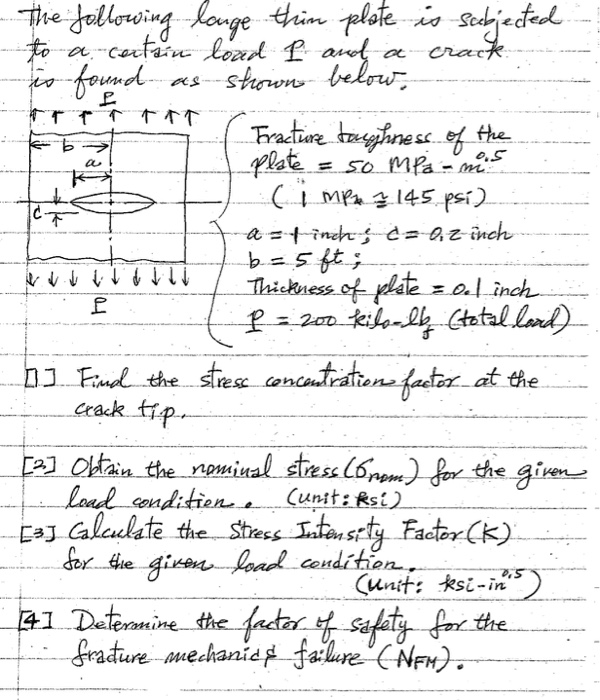 The following large thin plate is subjected
to a certain load P and a crack
is found as shown below.
P
b
a
c
P
Fracture toughness of the
plate = 50 MPa-m^0.5
(1 MPa ≅ 145 psi)
a = 1 inch; c = 0.2 inch
b = 5 ft;
Thickness of plate = 0.1 inch
P = 200 kilo-lbf (total load)
[1] Find the stress concentration factor at the
crack tip.
[2] Obtain the nominal stress (σnom) for the given
load condition. (unit: ksi)
[3] Calculate the Stress Intensity Factor (K)
for the given load condition.
(unit: ksi-in^0.5)
[4] Determine the factor of safety for the
fracture mechanics failure (NFM).